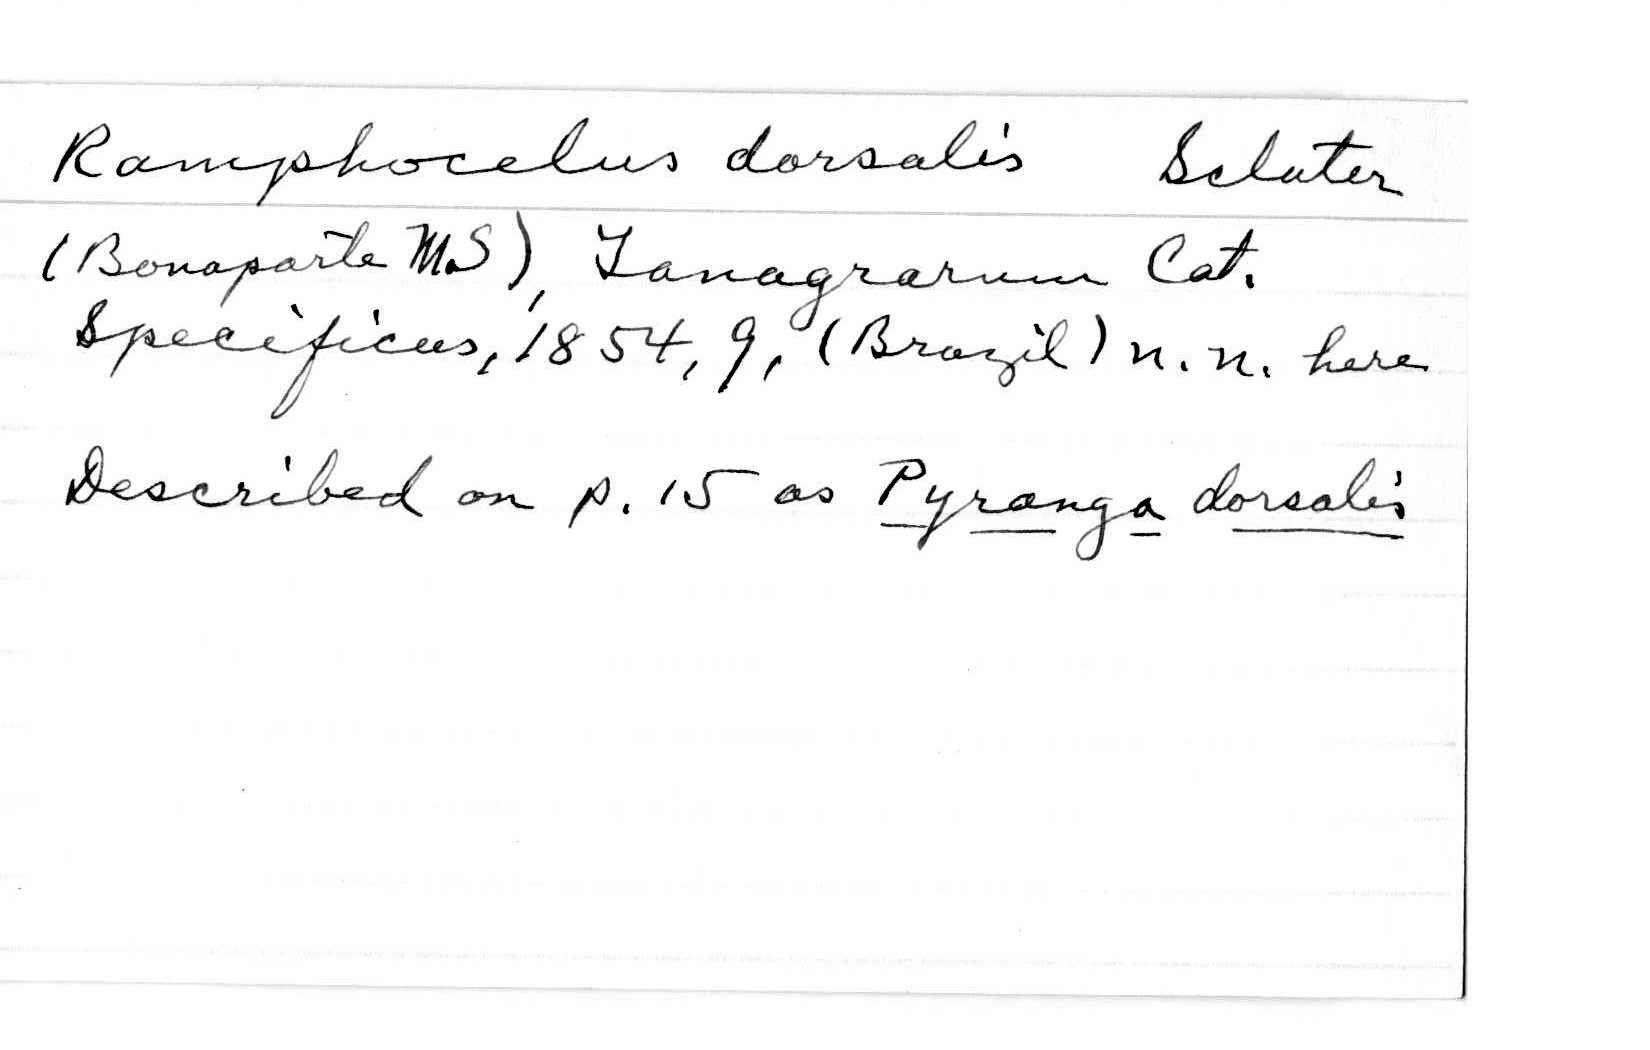 Ramphocelus dorsalis Sclater
(Bonaparte MS), Tanagrarum Cat.
Specificus, 1854, 9, (Brazil) n. n. here
Described on p. 15 as Pyranga dorsalis